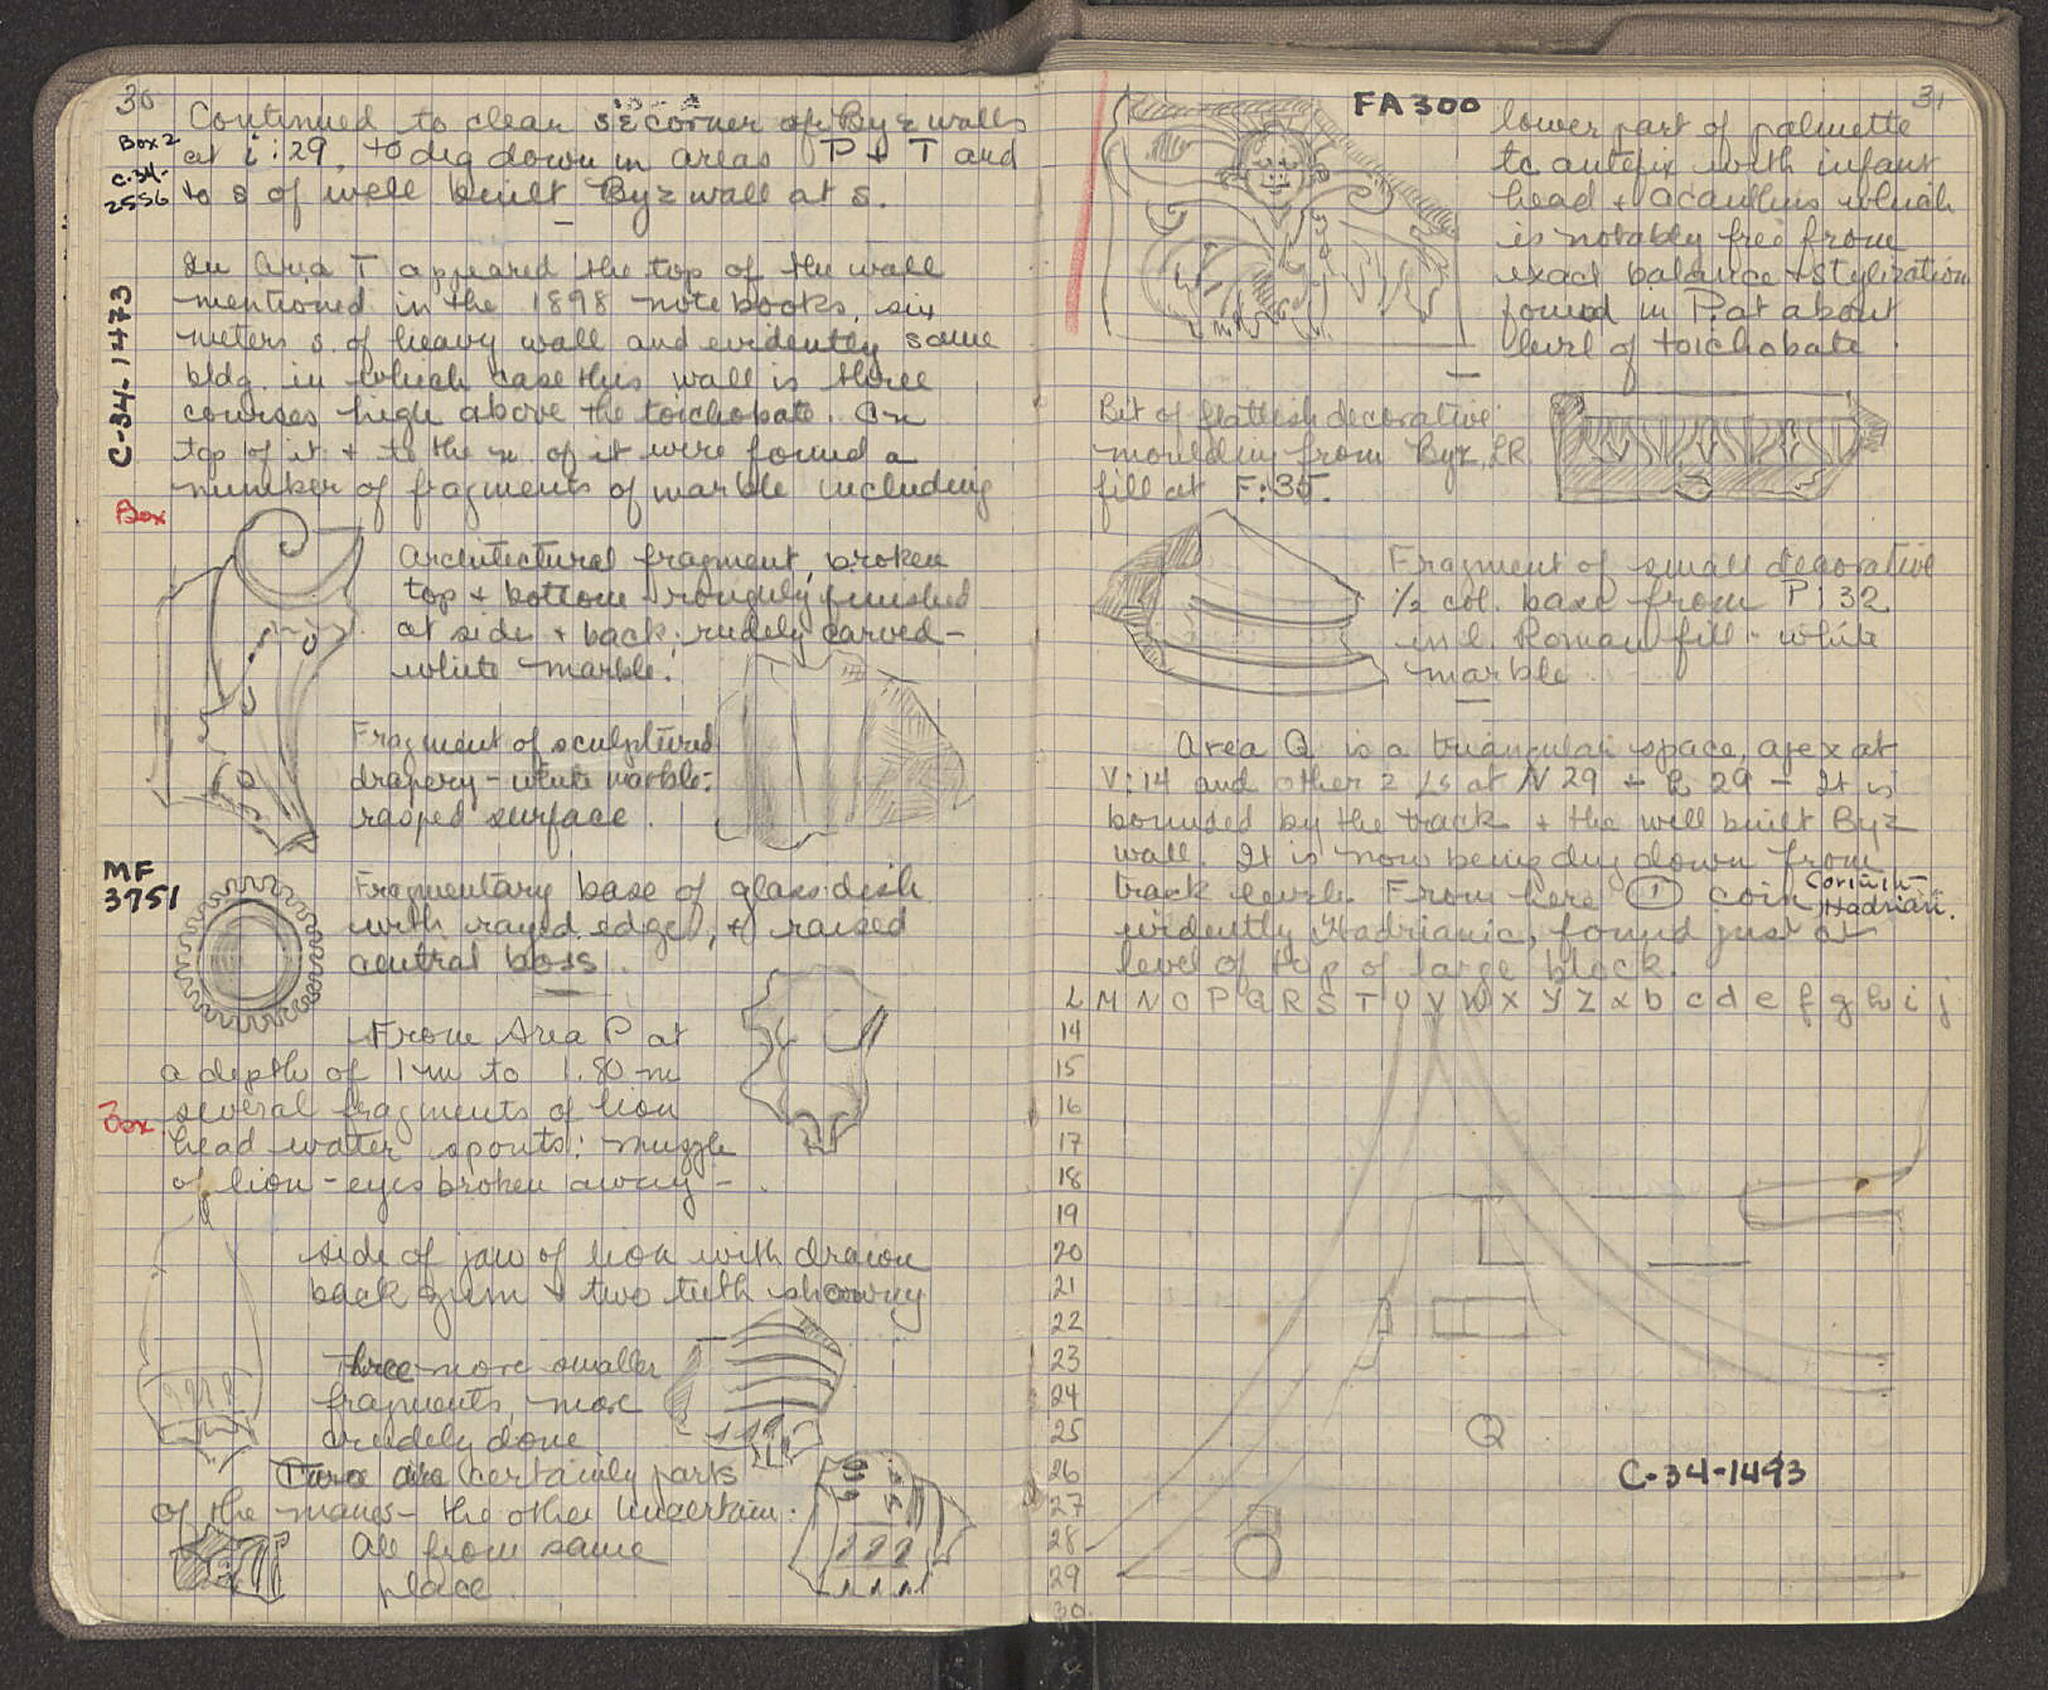 30
Continued to clear SE corner of Byz walls
at i:29, to dig down in areas P + T and
to S of well built Byz wall at S.
Box 2
C-34-
2556
C-34-1473
In Area T appeared the top of the wall
mentioned in the 1898 notebooks, six
meters s. of heavy wall and evidently same
bldg. in which case this wall is three
courses high above the toichobate. On
top of it + to the n. of it were found a
number of fragments of marble including
Box
Architectural fragment, broken
top + bottom roughly finished
at side + back; rudely carved-
white marble.
Fragment of sculptured
drapery - white marble-
rasped surface.
MF
3751
Fragmentary base of glass dish
with rayed edge, + raised
central boss.
From Area P at
a depth of 1 m to 1.80 m
several fragments of lion
Box
head water spouts: muzzle
of lion - eyes broken away -
side of jaw of lion with drawn
back gum + two teeth showing
Three more smaller
fragments, more
crudely done
Two are certainly parts
of the manes - the other uncertain.
All from same
place.
31
FA 300
lower part of palmette
tc antefix with infant
head + acanthus which
is notably free from
exact balance + stylization
found in P. at about
level of toichobate.
Bit of flattish decorative
moulding from Byz, LR.
fill at F:35.
Fragment of small decorative
1/2 col. base from P:32
in l. Roman fill - white
marble
Area Q is a triangular space, apex at
V:14 and other 2 Ls at N 29 + 29 - It is
bounded by the track + the well built Byz
wall. It is now being dug down from
track level. From here 1 coin Corinth-
Hadrian.
evidently Hadrianic, found just at
level of top of large block.
L M N O P Q R S T U V W X Y Z a b c d e f g h i j
14
15
16
17
18
19
20
21
22
23
24
25
Q
26
C-34-1493
27
28
29
30